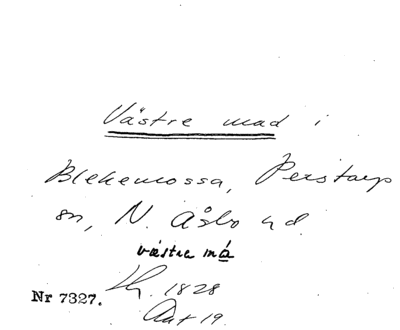 Västre mad i
Blekemossa, Perstorp
sn, N. Åsbo hd.
västra må
Nr 7327. 1828
Akt 19.